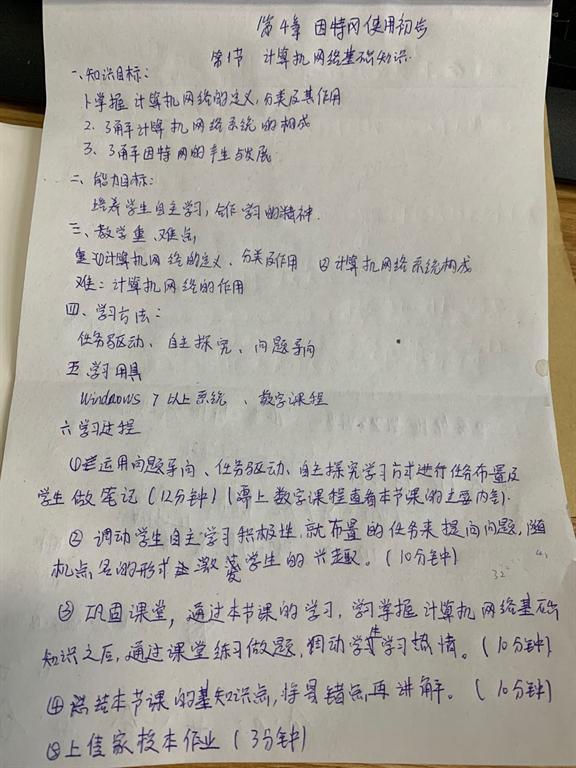 第4章 因特网使用初步
第1节 计算机网络基础知识.
一、知识目标:
1、掌握计算机网络的定义,分类及其作用
2. 了解计算机网络系统的构成
3、了解因特网的产生与发展.
二、能力目标:
培养学生自主学习,合作学习的精神.
三、教学重、难点,
重:(1)计算机网络的定义、分类及作用 (2)计算机网络系统构成
难:计算机网络的作用
四、学习方法:
任务驱动、自主探究、问题导向
五 学习用具
Windows 7以上系统、数字课程
六 学习过程
①运用问题导向、任务驱动、自主探究学习方式进行任务布置及
学生做笔记(12分钟)(上数字课程查看本节课的主要内容).
② 调动学生自主学习积极性,就布置的任务来提问问题,随
机点名的形式激发学生的兴趣。(10分钟)
③ 巩固课堂,通过本节课的学习,学习掌握计算机网络基础
知识之后,通过课堂练习做题,调动学生学习热情。(10分钟)
④总结本节课的基知识点,将易错点再讲解。(10分钟)
⑤上佳家校本作业(3分钟)